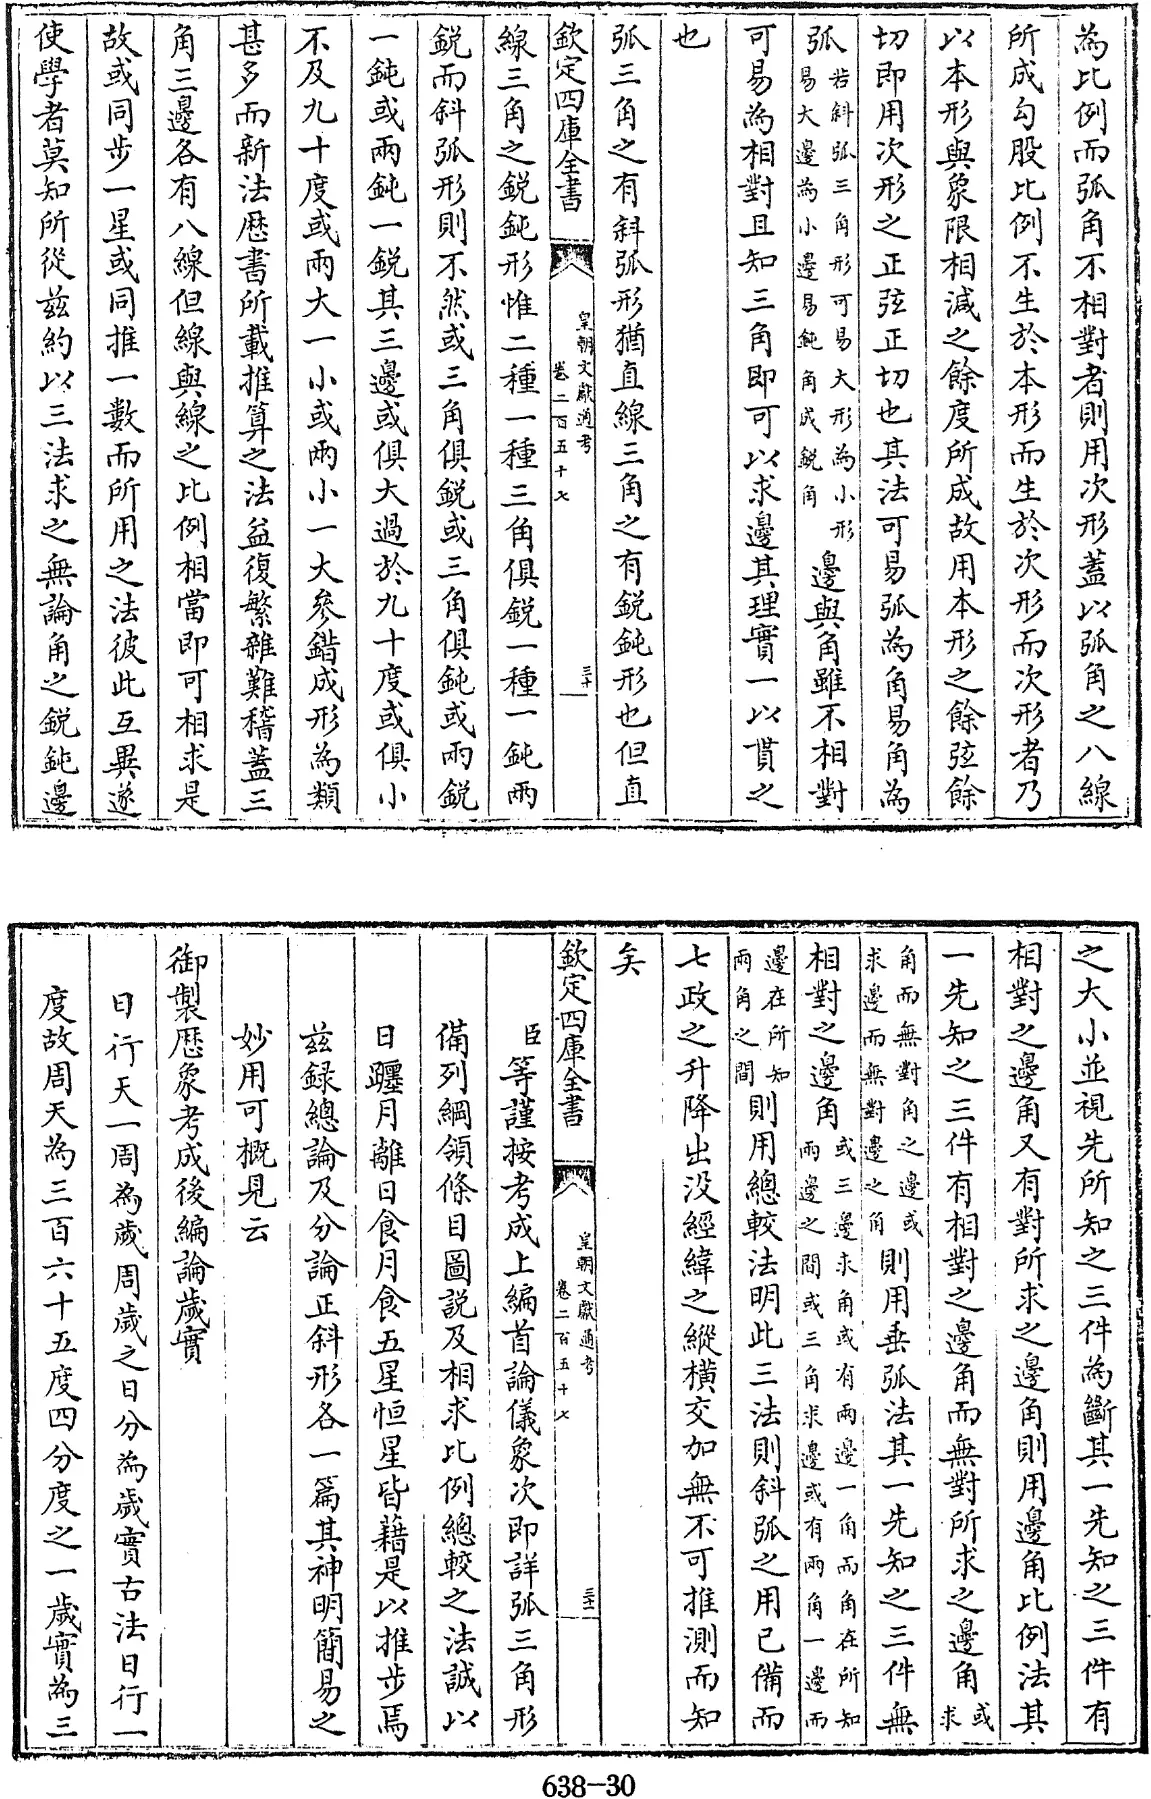 為比例而弧角不相對者則用次形蓋以弧角之八線
所成勾股比例不生於本形而生於次形而次形者乃
以本形與象限相減之餘度所成故用本形之餘弦餘
切即用次形之正弦正切也其法可易弧為角易角為
弧若斜弧三角形可易大形為小形易大邊為小邊易鈍角成銳角邊與角雖不相對
可易為相對且知三角即可以求邊其理實一以貫之
也
弧三角之有斜弧形猶直線三角之有銳鈍形也但直
欽定四庫全書
皇朝文獻通考
卷二百五十七
三十
線三角之銳鈍形惟二種一種三角俱銳一種一鈍兩
銳而斜弧形則不然或三角俱銳或三角俱鈍或兩銳
一鈍或兩鈍一銳其三邊或俱大過於九十度或俱小
不及九十度或兩大一小或兩小一大參錯成形為類
甚多而新法歴書所載推算之法益復繁雜難稽蓋三
角三邊各有八線但線與線之比例相當即可相求是
故或同步一星或同推一數而所用之法彼此互異遂
使學者莫知所從兹約以三法求之無論角之銳鈍邊
之大小並視先所知之三件為斷其一先知之三件有
相對之邊角又有對所求之邊角則用邊角比例法其
一先知之三件有相對之邊角而無對所求之邊角或求
角而無對角之邊或求邊而無對邊之角則用垂弧法其一先知之三件無
相對之邊角或三邊求角或有兩邊一角而角在所知兩邊之間或三角求邊或有兩角一邊而
邊在所知兩角之間則用總較法明此三法則斜弧之用已備而
七政之升降出没經緯之縱橫交加無不可推測而知
矣
欽定四庫全書
皇朝文獻通考
卷二百五十七
三十一
臣等謹按考成上編首論儀象次即詳弧三角形
備列綱領條目圖説及相求比例總較之法誠以
日躔月離日食月食五星恒星皆藉是以推步焉
兹録總論及分論正斜形各一篇其神明簡易之
妙用可概見云
御製歴象考成後編論歲實
日行天一周為歲周歲之日分為歲實古法日行一
度故周天為三百六十五度四分度之一歲實為三
638-30